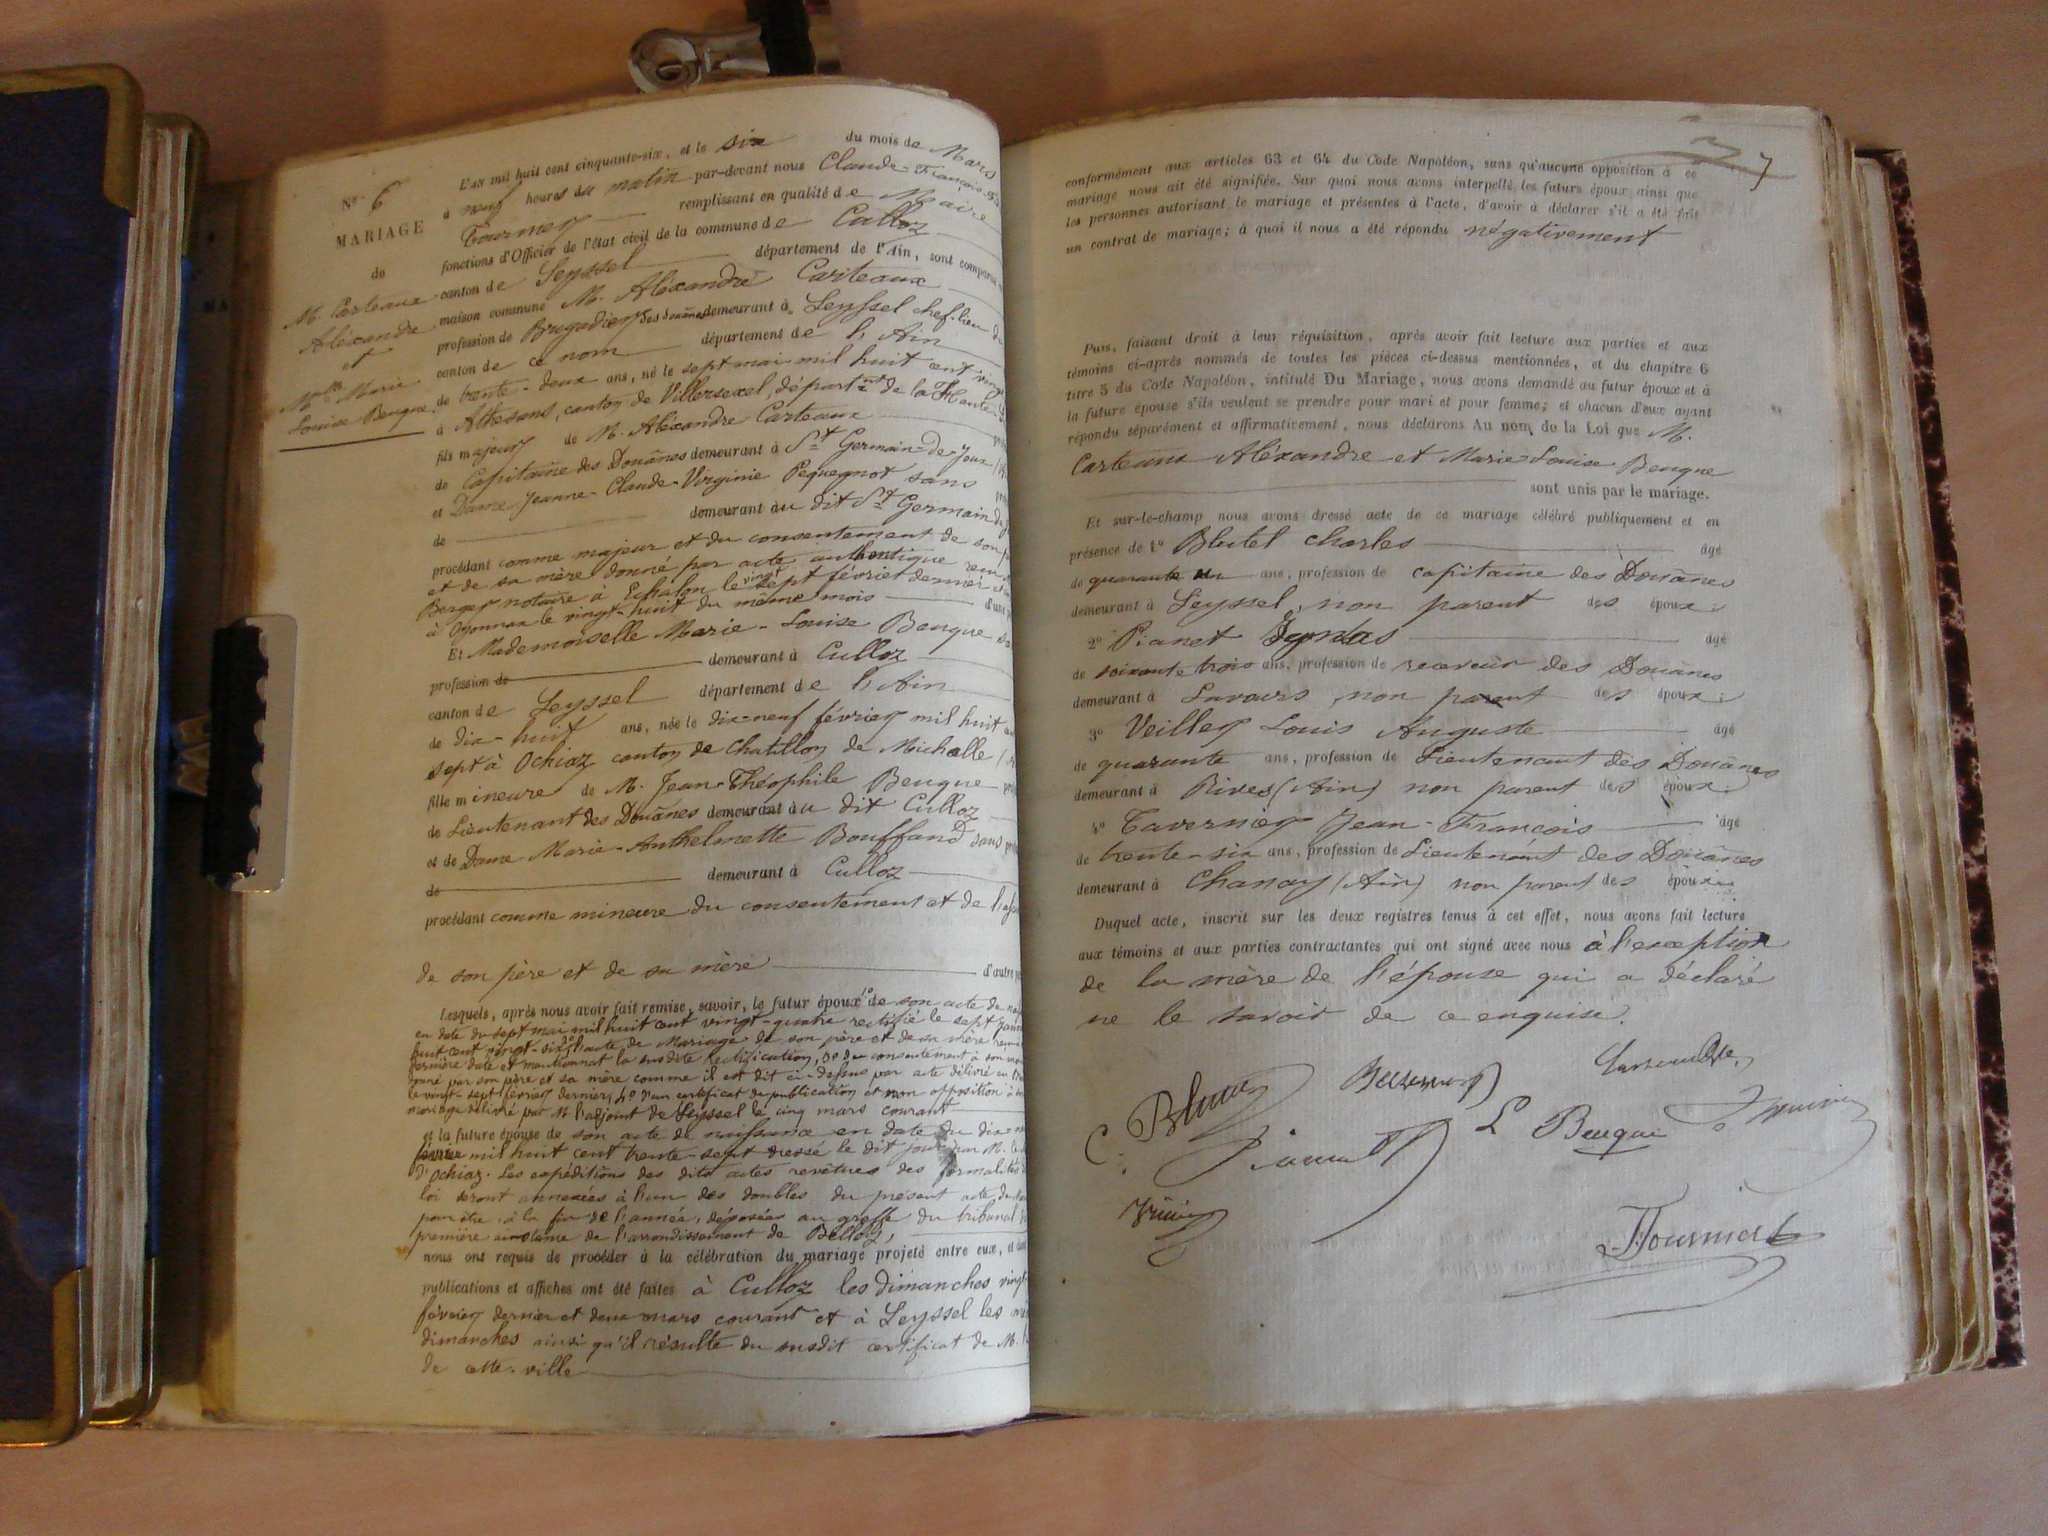 N° 6
MARIAGE
de
M. Carteaux
Aléxandre
et
Mlle Marie
Louise Beuque
L'AN mil huit cent cinquante-six, et le six du mois de Mars
à neuf heures du matin par-devant nous Claude-François
Fournier remplissant en qualité de Maire
fonctions d'Officier de l'état civil de la commune de Culloz
canton de Seyssel département de l'Ain, sont comparus
maison commune M. Aléxandre Carteaux
profession de Brigadier des douanes demeurant à Seyssel chef-lieu du
canton de ce nom département de l'Ain
de trente-deux ans, né le sept mai mil huit cent vingt
à Athesans, canton de Villersexel, départnt de la Haute
fils majeur de M. Aléxandre Carteaux
de Capitaine des Douanes demeurant à St Germain-de-Joux
et Dame Jeanne-Claude-Virginie Pequegnot sans
de demeurant au dit St Germain de
procédant comme majeur et du consentement de son
et de sa mère donné par acte authentique
Berger notaire à Echalon le vingt sept février dernier
à Oyonnax le vingt-huit du même mois d'une
Et Mademoiselle Marie-Louise Beuque
profession de demeurant à Culloz
canton de Seyssel département de l'Ain
de dix-huit ans, née le dix-neuf février mil huit
sept à Ochiaz canton de Chatillon de Michalle
fille mineure de M. Jean-Théophile Beuque
de Lieutenant des Douanes demeurant au dit Culloz
et de Dame Marie-Anthelmette Bouffand sans
de demeurant à Culloz
procédant comme mineure du consentement et de
de son père et de sa mère d'autre
Lesquels, après nous avoir fait remise, savoir, le futur époux 1° de son acte de
en date du sept mai mil huit cent vingt-quatre rectifié le sept
huit cent vingt-six 2° l'acte de Mariage de son père et de sa mère
dernière date et mentionnat la susdite rectification, 3° du consentement à son
donné par son père et sa mère comme il est dit ci-dessus par acte délivré
le vingt-sept février dernier, 4° d'un certificat de publication et non opposition à
mariage délivré par M. l'adjoint de Seyssel le cinq mars courant
et la future épouse de son acte de naissance en date du
février mil huit cent trente-sept dressé le dit jour par M.
d'Ochiaz. Les expéditions des dits actes revêtues des formalités
loi seront annexées à l'un des doubles du présent acte
pour être, à la fin de l'année, déposées au greffe du tribunal
première instance de l'arrondissement de Belley,
nous ont requis de procéder à la célébration du mariage projeté entre eux, et
publications et affiches ont été faites à Culloz les dimanches
février dernier et deux mars courant et à Seyssel les
dimanches ainsi qu'il résulte du susdit certificat de M.
de cette ville
7
conformément aux articles 63 et 64 du Code Napoléon, sans qu'aucune opposition à ce
mariage nous ait été signifiée. Sur quoi nous avons interpellé les futurs époux ainsi que
les personnes autorisant le mariage et présentes à l'acte, d'avoir à déclarer s'il a été fait
un contrat de mariage; à quoi il nous a été répondu négativement
Puis, faisant droit à leur réquisition, après avoir fait lecture aux parties et aux
témoins ci-après nommés de toutes les pièces ci-dessus mentionnées, et du chapitre 6
titre 5 du Code Napoléon, intitulé Du Mariage, nous avons demandé au futur époux et à
la future épouse s'ils veulent se prendre pour mari et pour femme; et chacun d'eux ayant
répondu séparément et affirmativement, nous déclarons Au nom de la Loi que M.
Carteaux Aléxandre et Marie-Louise Beuque
sont unis par le mariage.
Et sur-le-champ nous avons dressé acte de ce mariage célébré publiquement et en
présence de 1° Blutel Charles âgé
de quarante un ans, profession de capitaine des Douanes
demeurant à Seyssel, non parent des époux;
2° Pianet âgé
de soixante trois ans, profession de receveur des Douanes
demeurant à Lavours, non parent des époux;
3° Veilley Louis Auguste âgé
de quarante ans, profession de Lieutenant des Douanes
demeurant à Rives (Ain) non parent des époux;
4° Tavernier Jean-François âgé
de trente-six ans, profession de Lieutenant des Douanes
demeurant à Chanay (Ain) non parent des époux;
Duquel acte, inscrit sur les deux registres tenus à cet effet, nous avons fait lecture
aux témoins et aux parties contractantes qui ont signé avec nous à l'exception
de la mère de l'épouse qui a déclaré
ne le savoir de ce enquise.
L Beuque
Fournier